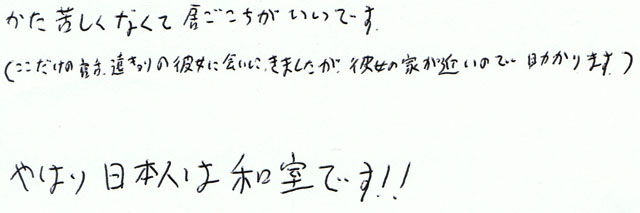 かた苦しくなくて居ごこちがいいです。
(ここだけの話、遠きょりの彼女に会いにきましたが、彼女の家が近いので助かります。)
やはり日本人は和室です!!